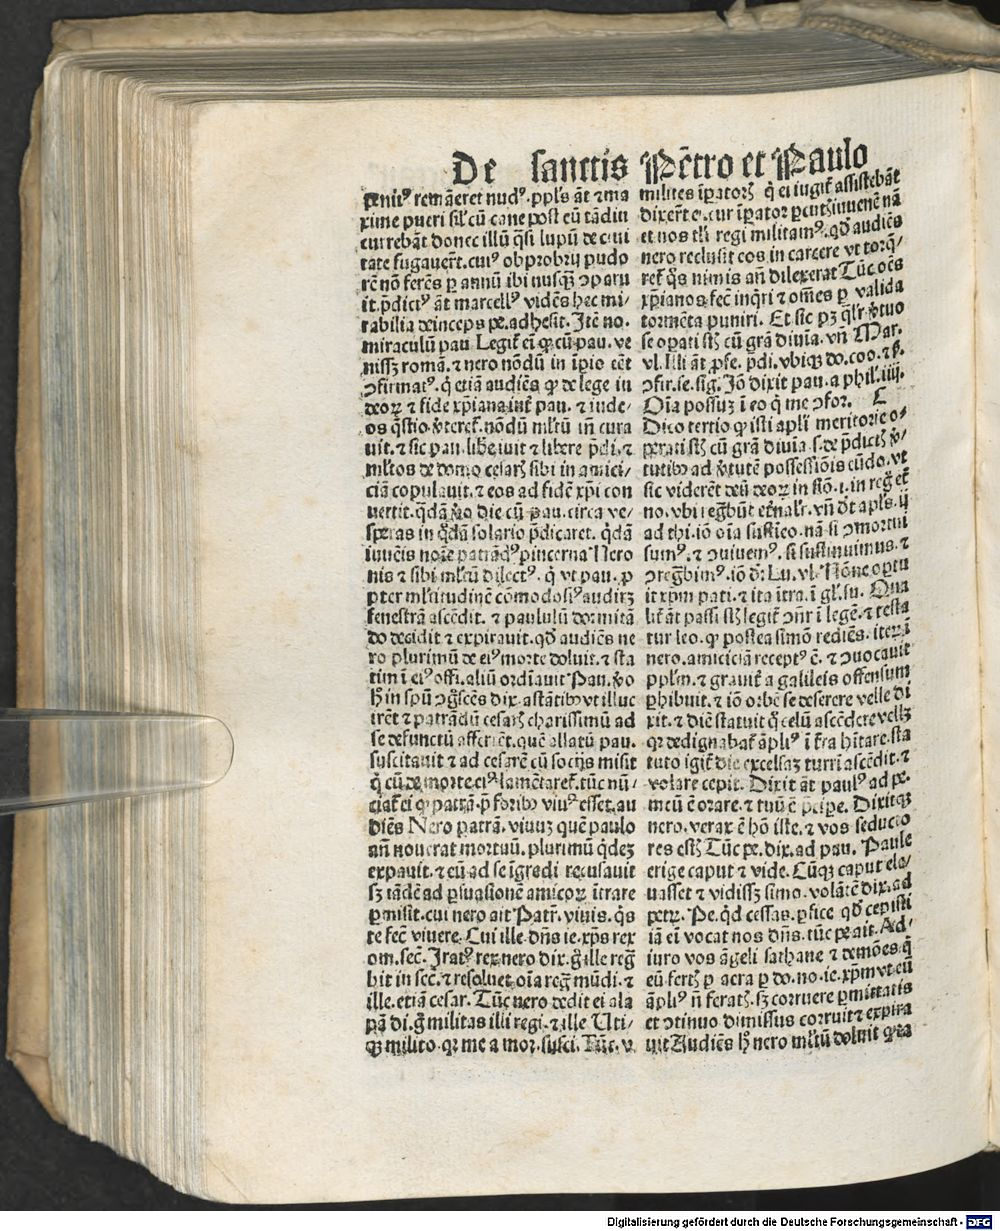 De sanctis Petro et Paulo
penitꝰ remāeret nudꝰ. ppl's āt ⁊ ma
xime pueri sil' cū cane post eū tādiu
currebāt donec illū q̄si lupū de ciui
tate fugauer̄t. cuiꝰ obprobrij pudo
rē nō ferēs ꝑ annū ibi nusꝗ̄ ɔparu
it. p̄dictꝰ āt marcellꝰ vidēs hec mi-
rabilia deinceps pe. adhesit. Itē no.
miraculū pau Legit̄ eī ꝙ cū pau. ve
nissꝫ romā. ⁊ nero nōdū in īpio eēt
ɔfirmatꝰ. q̄ etiā audiēs ꝙ de lege iu
deoꝝ ⁊ fide xp̄iana int̄ pau. ⁊ iude-
os q̄stio v̓teret̄. nōdū ml'tū in̄ cura
uit. ⁊ sic pau. libe iuit ⁊ libere p̄di. ⁊
ml'tos de domo cesarꝭ sibi in amici-
ciā copulauit. ⁊ eos ad fidē xp̄i con
uertit. q̄dā v̓o die cū pau. circa ve-
speras in q̄dā solario p̄dicaret. q̄dā
iuuēis noīe patrādꝰ pincerna Nero
nis ⁊ sibi ml'tū dilectꝰ. q̄ vt pau. ꝓ
pter ml'titudinē cōmodosiꝰ audirꝫ
fenestrā ascēdit. ⁊ paululū dormitā
do decidit ⁊ expirauit. qd̄ audiēs ne
ro plurimū de eiꝰ morte doluit. ⁊ sta
tim ī eiꝰ offi. aliū ordīauit Pau. v̓o
h̄ in spū ɔgsc̄es dix. astātibꝰ vt illuc
irēt ⁊ patrādū cesarꝭ charissimū ad
se defunctū afferrēt. quē allatū pau.
suscitauit ⁊ ad cesarē cū socijs misit
q̄ cū de morte eiꝰ lamētaret̄. tūc nū-
ciat̄ ei ꝙ patrā. p̄ foribꝰ viuꝰ esset. au
diēs Nero patrā. viuuꝫ quē paulo
an̄ nouerat mortuū. plurimū q̄deꝫ
expauit. ⁊ eū ad se īgredi recusauit
sꝫ tādē ad ꝑsuasionē amicoꝝ ītrare
ꝑmisit. cui nero ait Patr̄. viuis. q̄s
te fec̄ viuere. Cui ille. dn̄s ie. xp̄s rex
om. sec̄. Iratꝰ rex nero dix. g̊ ille reḡ
bit in sec̄. ⁊ resoluet oīa reḡ mūdi. ⁊
ille. etiā cesar. Tūc nero dedit ei ala
pā di. g̊ militas illi regi. ⁊ ille Uti-
ꝗ milito. qꝛ me a mor. susci. Tūc. v.
milites īꝑatorꝭ q̄ ei iugit̄ assistebāt
dixer̄t ei. cur īꝑator ꝑcutꝭ iuuenē nā
et nos tl'i regi militamꝰ. qd̄ audiēs
nero reclusit eos in carcere vt torq̄-
ret̄ q̄s nimis an̄ dilexerat Tūc oēs
xp̄ianos fec̄ inq̄ri ⁊ om̄es ꝑ valida
tormēta puniri. Et sic pꝫ ql'r v̓tuo
se opati st̄ cū grā diuīa. vn̄ Mar.
vl. Illi āt ꝓfe. p̄di. vbiꝗ do. coo. ⁊ ẜ.
ɔfir. se. sig. Iō dixit pau. a phil'. iiij.
Oīa possuꝫ ī eo q̄ me ɔfor.
Dico tertio ꝙ isti apl'i meritorie o-
perati st̄ cū grā diuīa ẜ. de p̄dictꝭ v̓-
tutibꝰ ad v̓tutē possessiōis cūdo. vt
sic viderēt deū deoꝝ in sīō. i. in reg̊ et̓
no. vbi reḡbūt et̓nal'r. vn̄ dt̄ apl's. ij
ad thi. iō oīa sustīeo. nā si ɔmortui
sumꝰ. ⁊ ɔuiuemꝰ. si sustinuimus. ⁊
ɔreḡbimꝰ. iō dr̄ Lu. vl. Nōne optu
it xpm̄ pati. ⁊ ita ītra. ī gl'. su. Qua
lit̄ āt passi st̄ legit̄ ɔn̄r ī legē. ⁊ testa
tur leo. ꝙ postea simō rediēs. iteꝝ ī
nero. amiciciā receptꝰ ē. ⁊ ɔuocauit
ppl'm. ⁊ grauit̄ a galileis offensum
ꝓhibuit. ⁊ iō orbē se deserere velle di
xit. ⁊ diē statuit q̊ celū ascēdere vellꝫ
qꝛ dedignabat̄ āpliꝰ ī t̄ra hītare. sta
tuto igit̄ die excelsaꝫ turrī ascēdit. ⁊
volare cepit. Dixit āt paulꝰ ad pe.
meū ē orare. ⁊ tuū ē p̄cipe. Dixitꝗ
nero. verax ē hō iste. ⁊ vos seducto
res estꝭ Tūc pe. dix. ad pau. Paule
erige caput ⁊ vide. Cūꝗ caput ele-
uasset ⁊ vidissꝫ simo. volātē dix. ad
petꝝ. Pe. qd̄ cessas. ꝑfice qd̄ cepisti
iā eī vocat nos dn̄s. tūc pe ait. Ad-
iuro vos āgeli sathane ⁊ demōes q̄
eū fertꝭ ꝑ aera ꝑ do. no. ie. xpm̄ vt eū
āpliꝰ n̄ feratꝭ. sꝫ corruere ꝑmittatis
et ɔtinuo dimissus corruit ⁊ expira
uit Audiēs h̄ nero ml'tū doluit
Digitalisierung gefördert durch die Deutsche Forschungsgemeinschaft - DFG